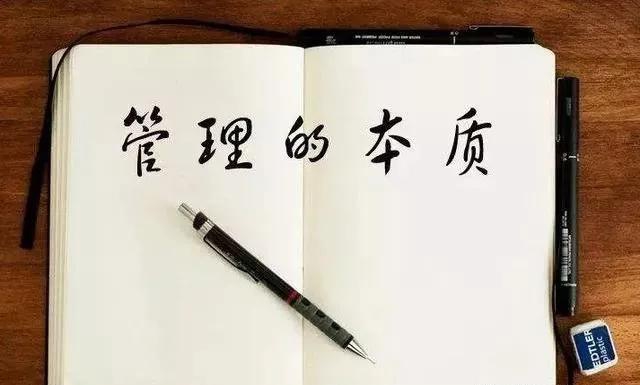 管理的本质
EDTLER
plastic